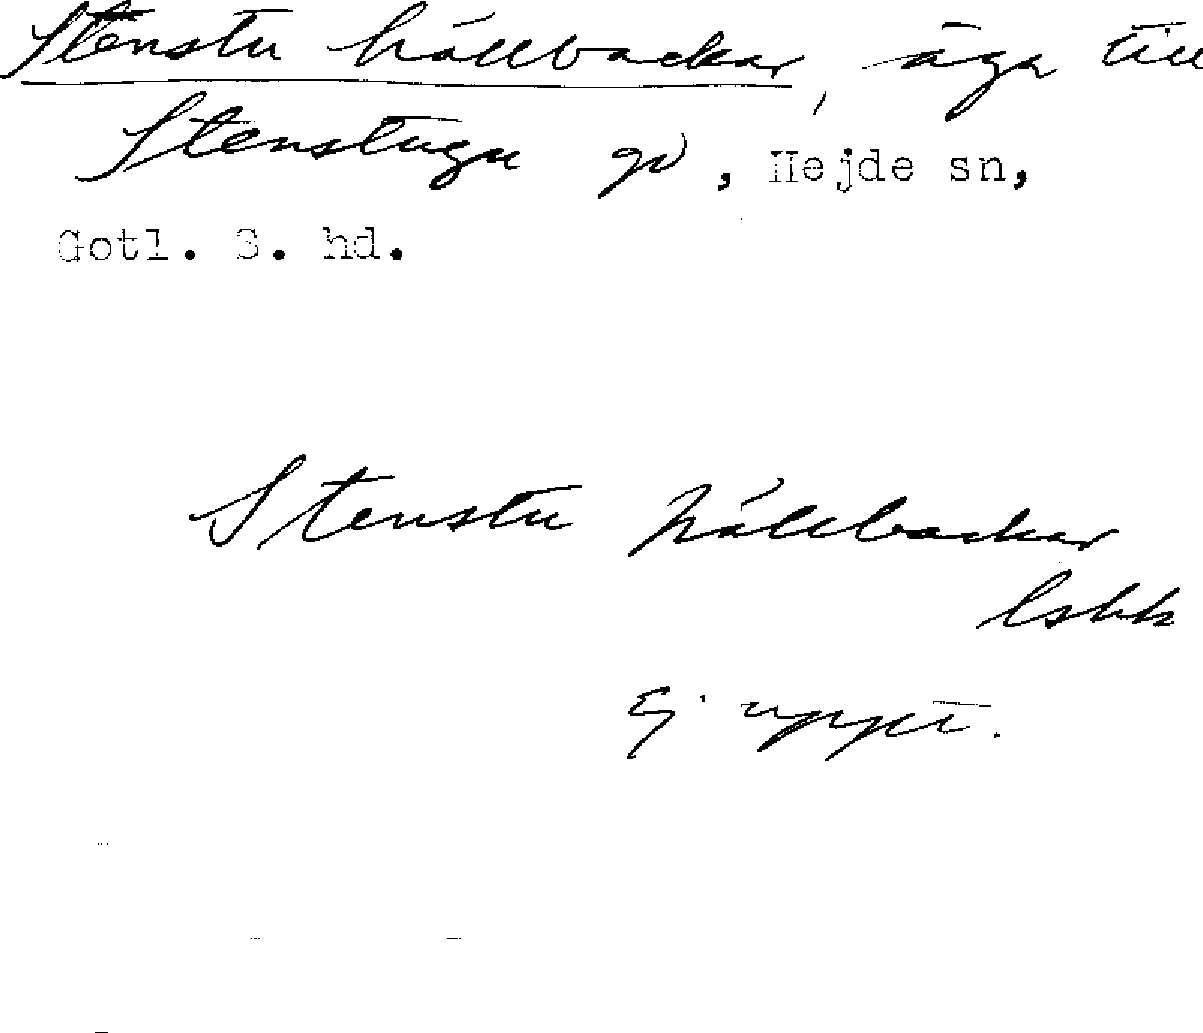 Stenstu hállbackar, äga till
Stenstugu gd, Hejde sn,
Gotl. S. hd.
Stenstu hállbackar
lshk
Ej uppt.